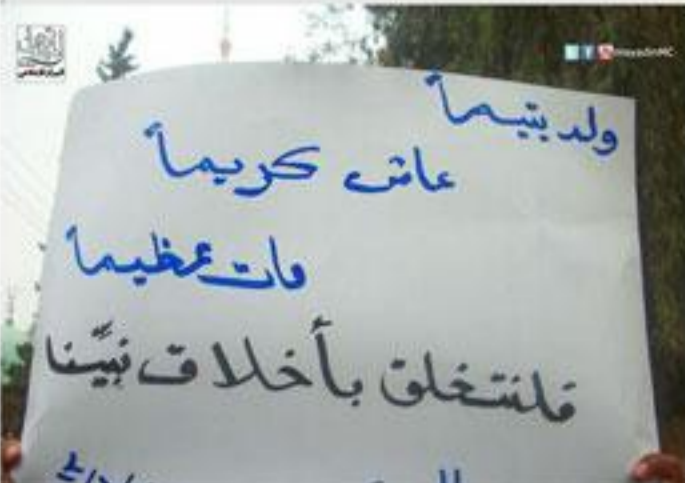 ولد يتيماً
عاش كريماً
مات عظيماً
فلنتخلق بأخلاق نبيّنا